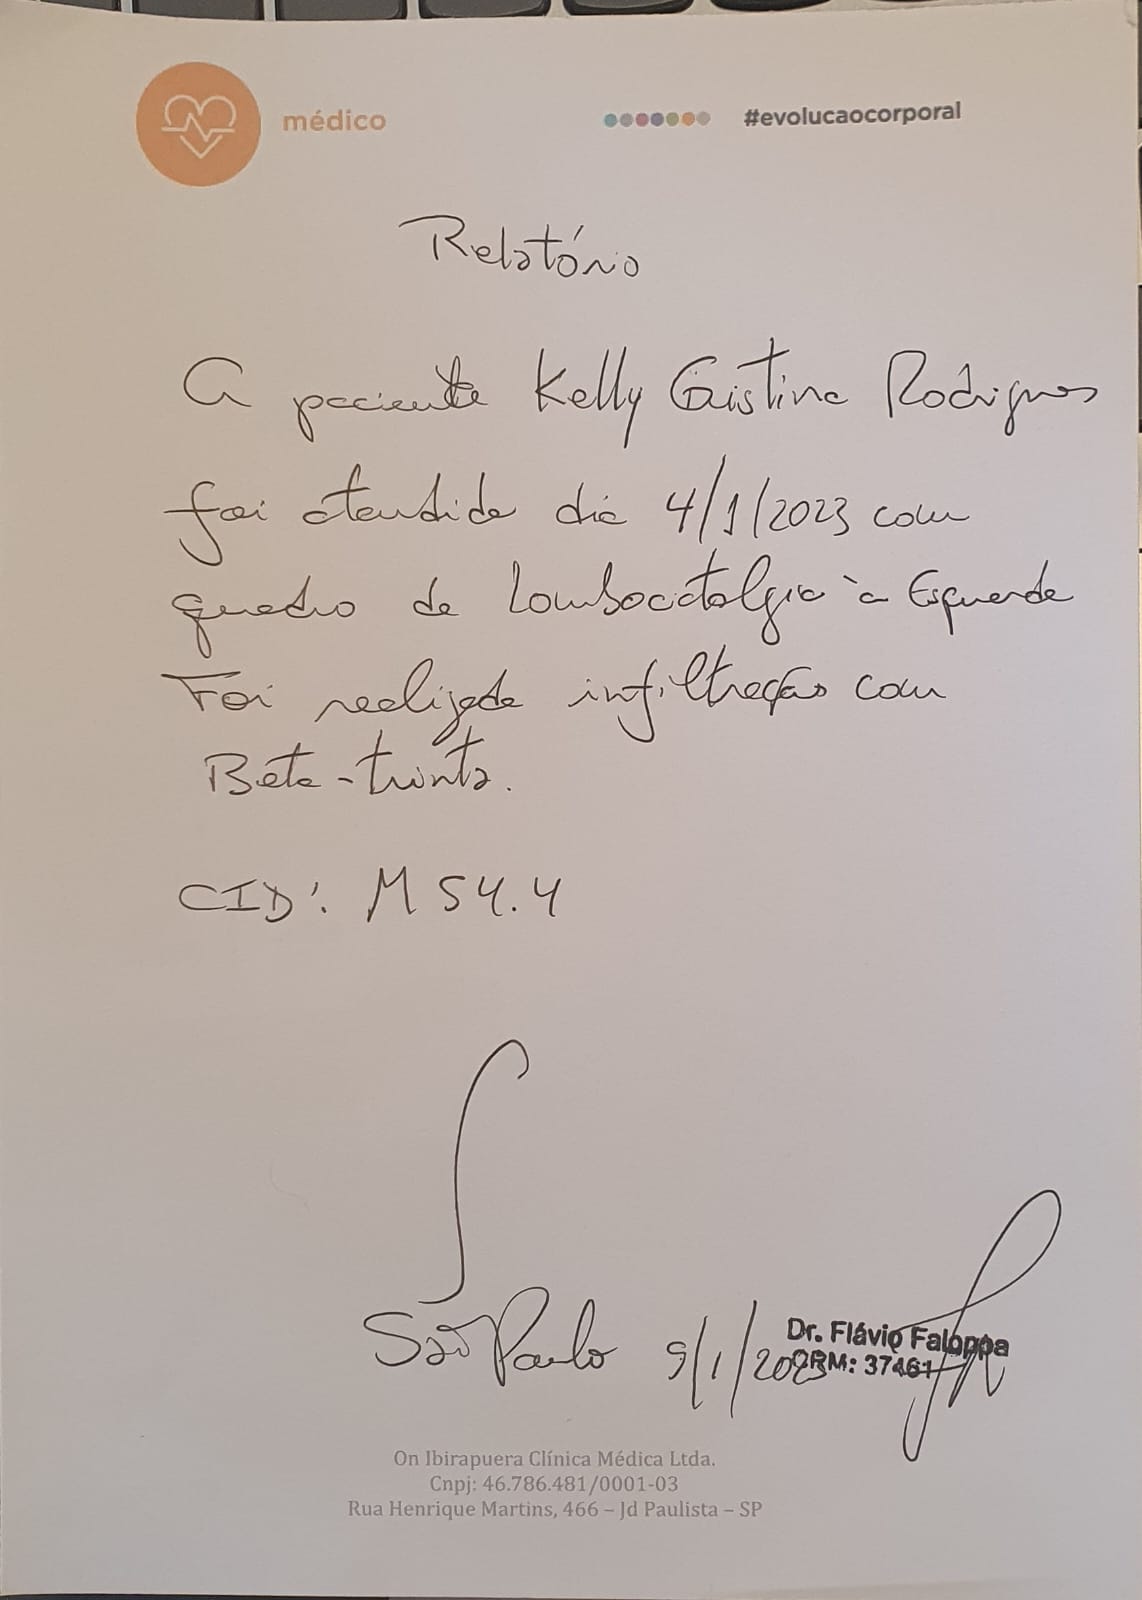 médico
#evolucaocorporal
Relatório
A paciente Kelly Cristina Rodrigues
foi atendida dia 4/1/2023 com
quadro de Lombociatalgia à Esquerda
Foi realizada infiltração com
Beta-trinta.
CID: M54.4
São Paulo 9/1/2023
Dr. Flávio Faloppa
CRM: 37461
On Ibirapuera Clínica Médica Ltda.
Cnpj: 46.786.481/0001-03
Rua Henrique Martins, 466 – Jd Paulista – SP